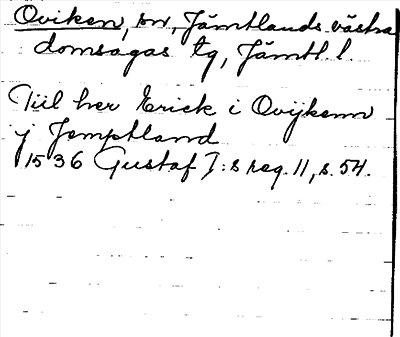 Oviken, sn, Jämtlands västra
domsagas tg, Jämtl. l.
Tiil her Erick i Ovijkenn
y Jemptland
1536 Gustaf I:s reg. 11, s. 54.